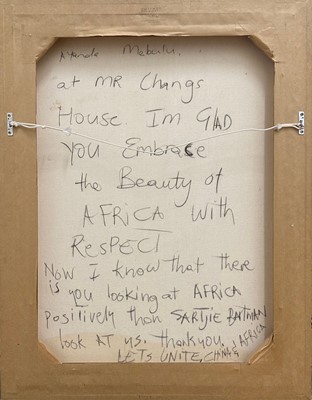 Ayanda Mabulu.
at MR Changs
House Im GLAD
You Embrace
the Beauty of
AFRICA With
RESPECT
Now I know that there
is you looking at AFRICA
Positively than SARTJIE BARTMAN
look AT us. thank you.
LETS UNITE, CHINA & AFRICA